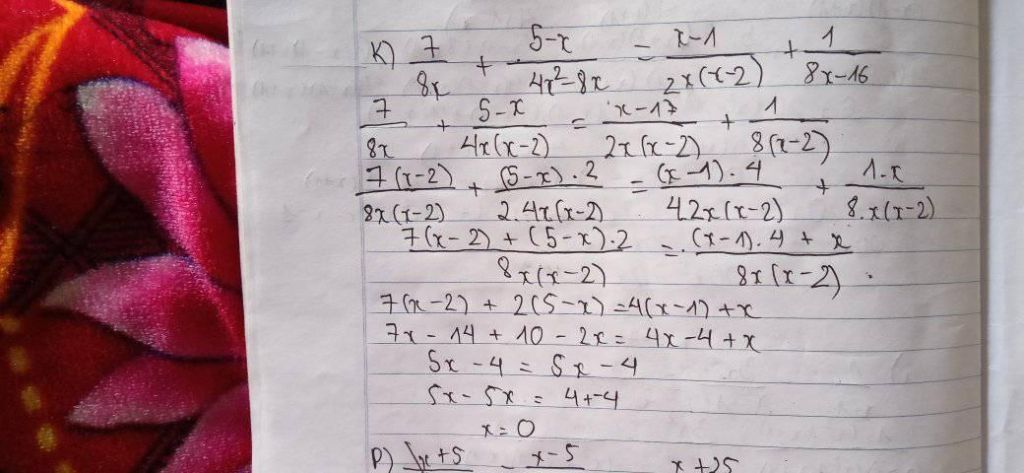 K) 7/8x + 5-x/4x²-8x = x-1/2x(x-2) + 1/8x-16
7/8x + 5-x/4x(x-2) = x-17/2x(x-2) + 1/8(x-2)
7(x-2)/8x(x-2) + (5-x).2/2.4x(x-2) = (x-1).4/4.2x(x-2) + 1.x/8.x(x-2)
7(x-2) + (5-x).2/8x(x-2) = (x-1).4 + x/8x(x-2).
7(x-2) + 2(5-x) = 4(x-1) + x
7x - 14 + 10 - 2x = 4x-4 + x
5x - 4 = 5x - 4
5x - 5x = 4+-4
x = 0
P) x+5 - x-5 x+25